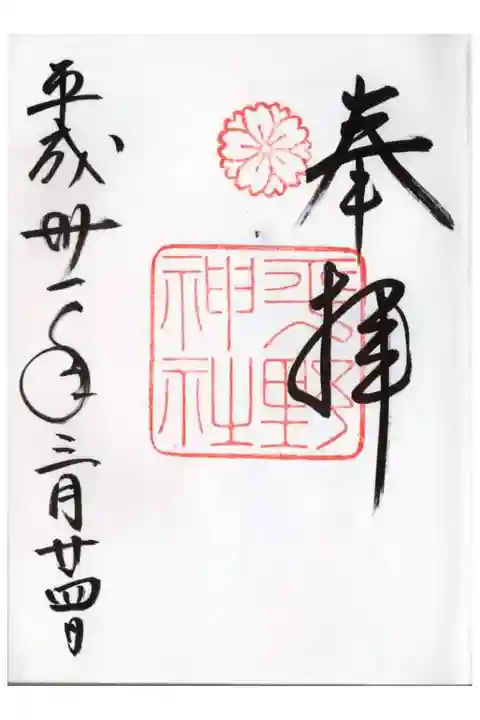 奉拝
平野
神社
平成卅一年三月廿四日